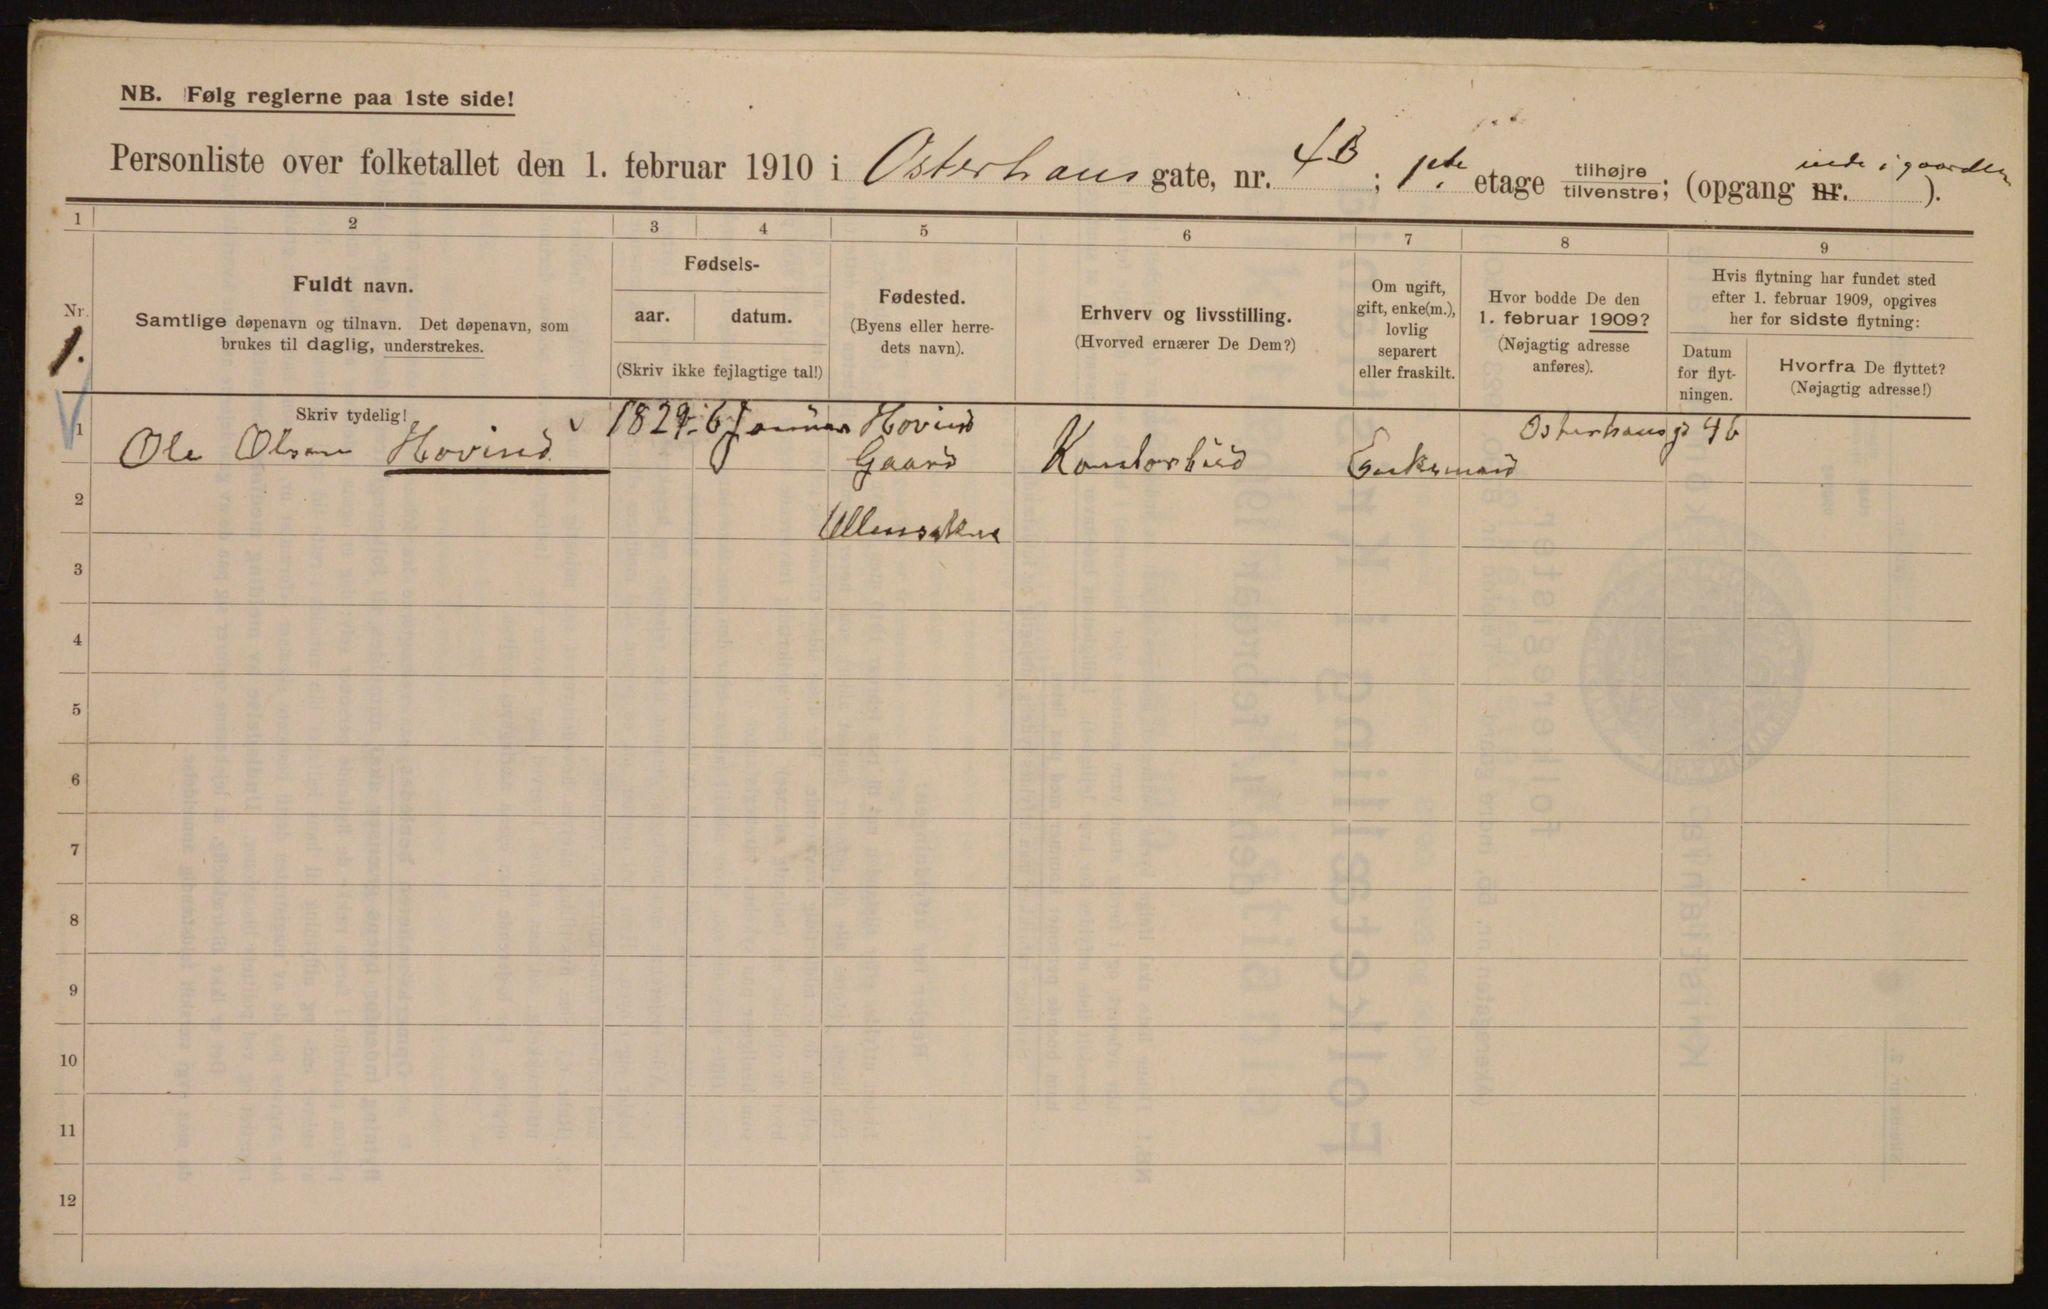 NB. Følg reglerne paa 1ste side!
Personliste over folketallet den 1. februar 1910 i Osterhaus gate, nr. 4B ; 1ste etage tilhøjre/tilvenstre; (opgang nr. inde i gaarden ).
1 2 3 4 5 6 7 8 9
Nr.
1.
Fuldt navn.
Samtlige døpenavn og tilnavn. Det døpenavn, som
brukes til daglig, understrekes.
Skriv tydelig!
Fødsels-
aar. datum.
(Skriv ikke fejlagtige tal!)
Fødested.
(Byens eller herre-
dets navn).
Erhverv og livsstilling.
(Hvorved ernærer De Dem?)
Om ugift,
gift, enke(m.),
lovlig
separert
eller fraskilt.
Hvor bodde De den
1. februar 1909?
(Nøjagtig adresse
anføres).
Hvis flytning har fundet sted
efter 1. februar 1909, opgives
her for sidste flytning:
Datum
for flyt-
ningen.
Hvorfra De flyttet?
(Nøjagtig adresse!)
1 Ole Olsen Hovind 1829 6 Januar Hovind Kontorbud Enkemand Osterhausg 4b
Gaard
2 Ullensaker
3
4
5
6
7
8
9
10
11
12